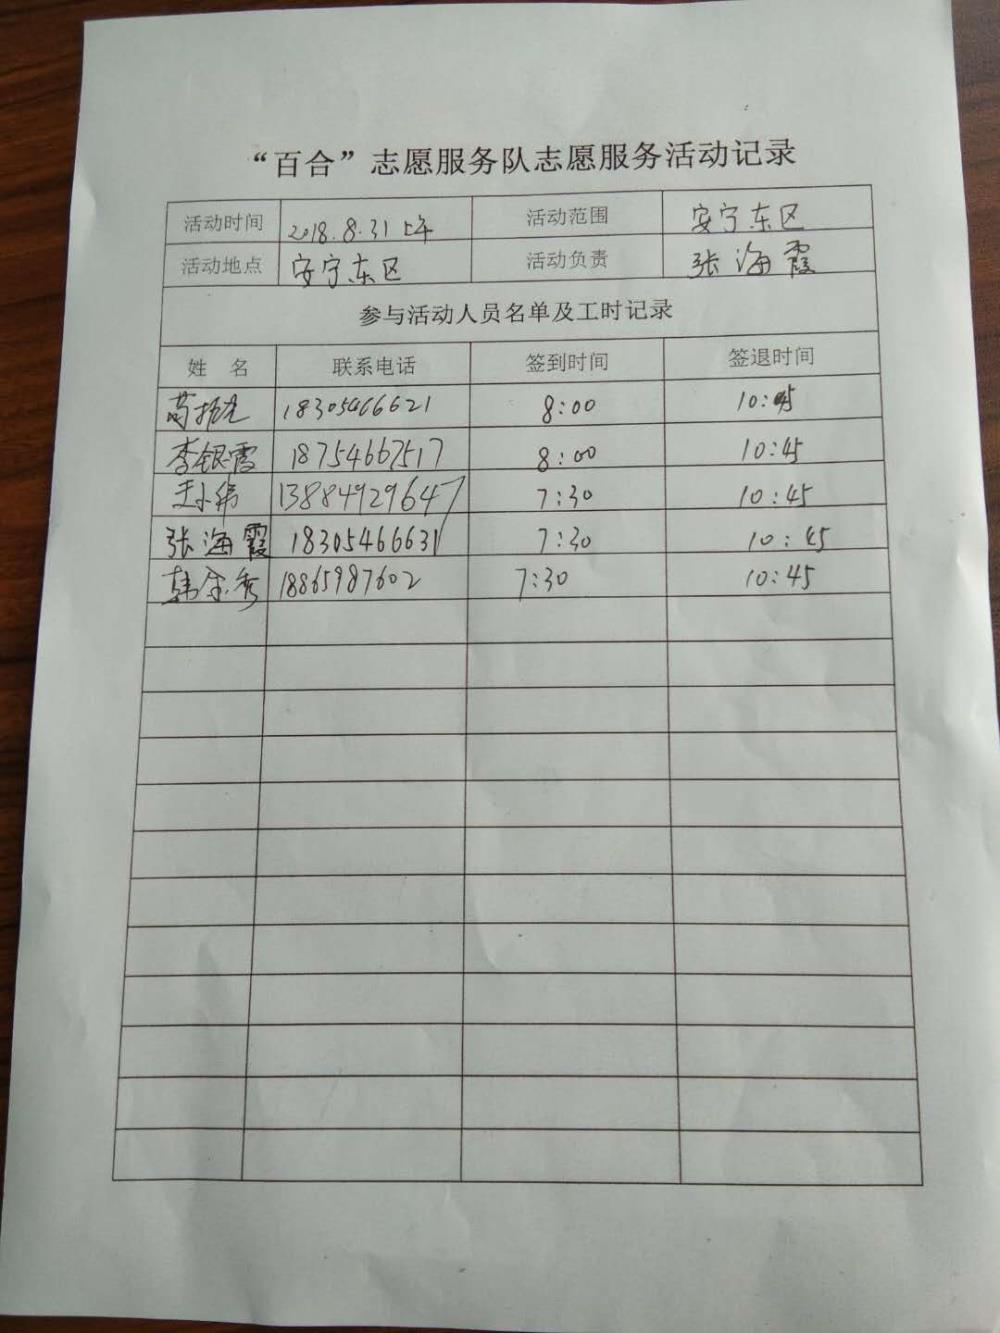 “百合”志愿服务队志愿服务活动记录
活动时间 2018.8.31上午 活动范围 安宁东区
活动地点 安宁东区 活动负责 张海霞
参与活动人员名单及工时记录
姓 名 联系电话 签到时间 签退时间
18305466621 8:00 10:45
李银霞 18754667517 8:00 10:45
王小伟 13884929647 7:30 10:45
张海霞 18305466631 7:30 10:45
韩金秀 18865987602 7:30 10:45